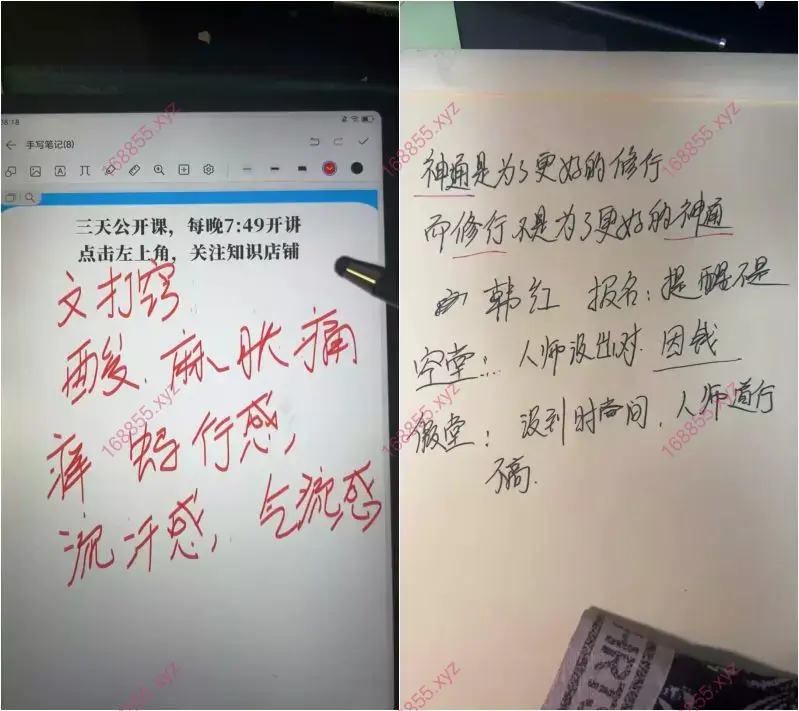 18:18
手写笔记(8)
三天公开课，每晚7:49开讲
点击左上角，关注知识店铺
文打窍
酸、麻、胀、痛
痒 蚂行感，
流汗感，气流感
神通是为了更好的修行
而修行不是为了更好的神通
韩红 报名：提醒不是
空堂：人师没出对 因钱
假堂：没到时间，人师道行
不高.
168855.xyz
168855.xyz
168855.xyz
168855.xyz
168855.xyz
168855.xyz
168855.xyz
168855.xyz